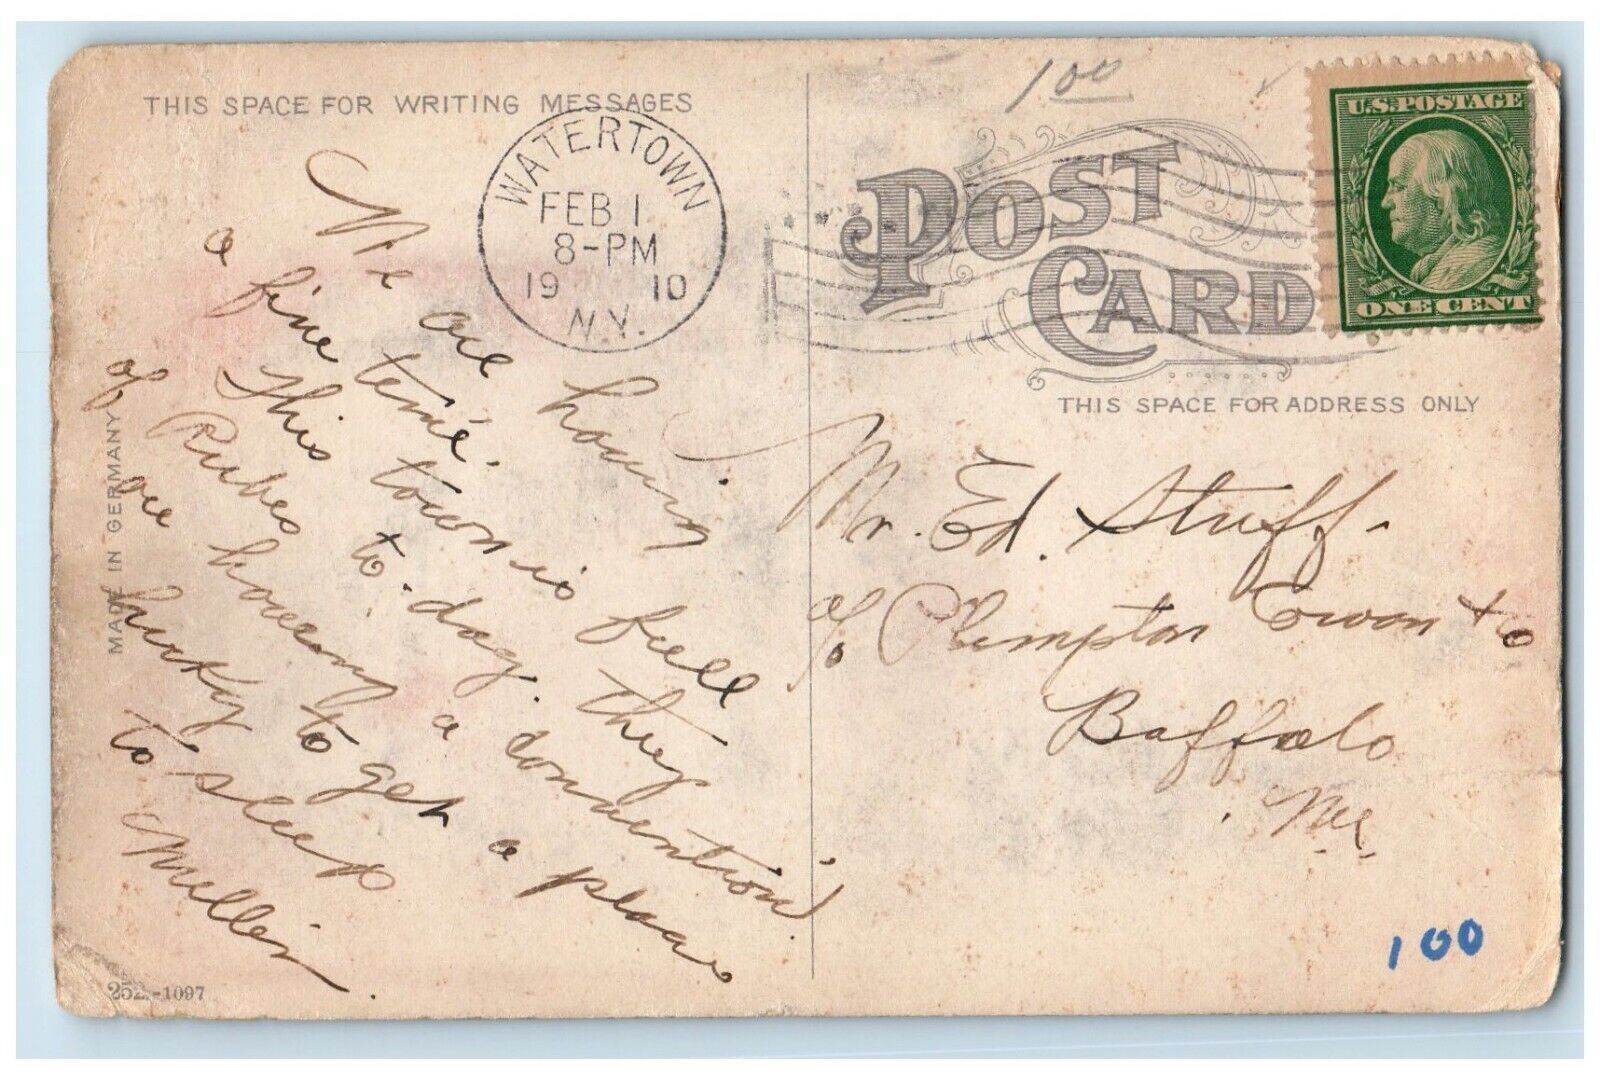 THIS SPACE FOR WRITING MESSAGES
WATERTOWN
FEB 1
8-PM
19 10
N.Y.
We are having
a fine time.
This town is full
of Rubes to-day. they
are having a convention
lucky to get a place
to sleep
Miller.
MADE IN GERMANY
252-1097
1 00
POST CARD
U.S. POSTAGE
ONE CENT
THIS SPACE FOR ADDRESS ONLY
Mr. Ed. Stuff.
c/o Plimpton Cowan + Co
Buffalo
100